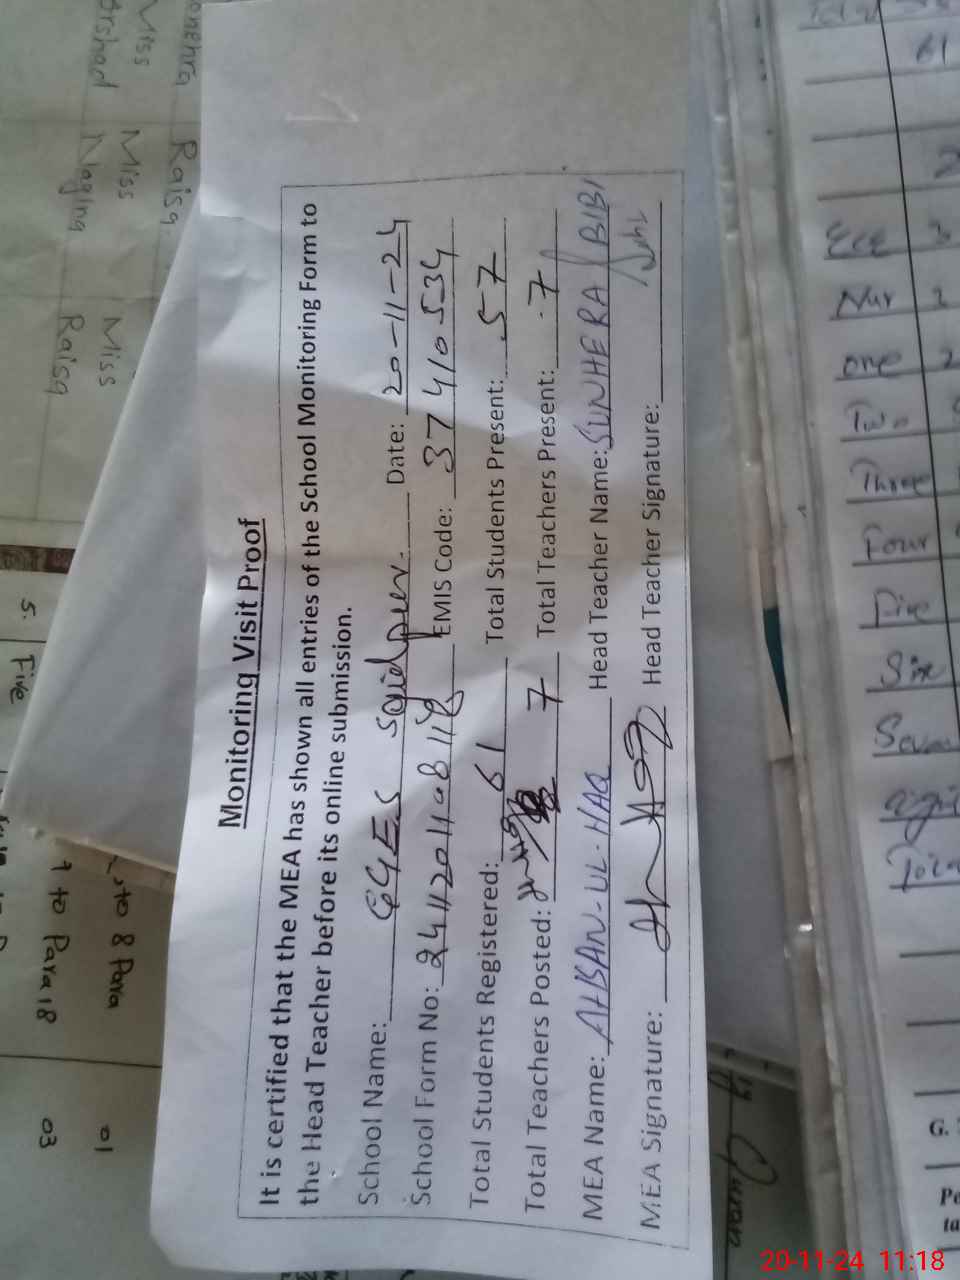 Monitoring Visit Proof
It is certified that the MEA has shown all entries of the School Monitoring Form to
the Head Teacher before its online submission.
School Name: GGES Saidpur. Date: 20-11-24
School Form No: EMIS Code: 37410534
Total Students Registered: 61 Total Students Present: 57
Total Teachers Posted: 7 Total Teachers Present: 7
MEA Name: AHSAN-UL-HAQ Head Teacher Name: SUNHERA BIBI
MEA Signature: Head Teacher Signature:
Miss Miss Miss
Arshad Nagina Raisa
Raisa
5. Five
to 8 Para 01
1 to Para 18 03
Quran
61
Ece 3
Nur
one 2
Two
Three
Four
Five
Six
Seven
G.
20-11-24 11:18